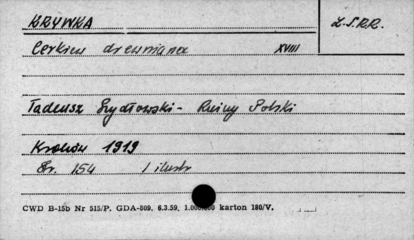 KRYWKA
Z.S.R.R.
Cerkiew drewniana XVIII
Tadeusz Szydłowski - Ruiny Polski
Kraków 1919
Str. 154 1 ilustr
CWD B-15b Nr 515/P. GDA-809. 6.3.59. karton 180/V.